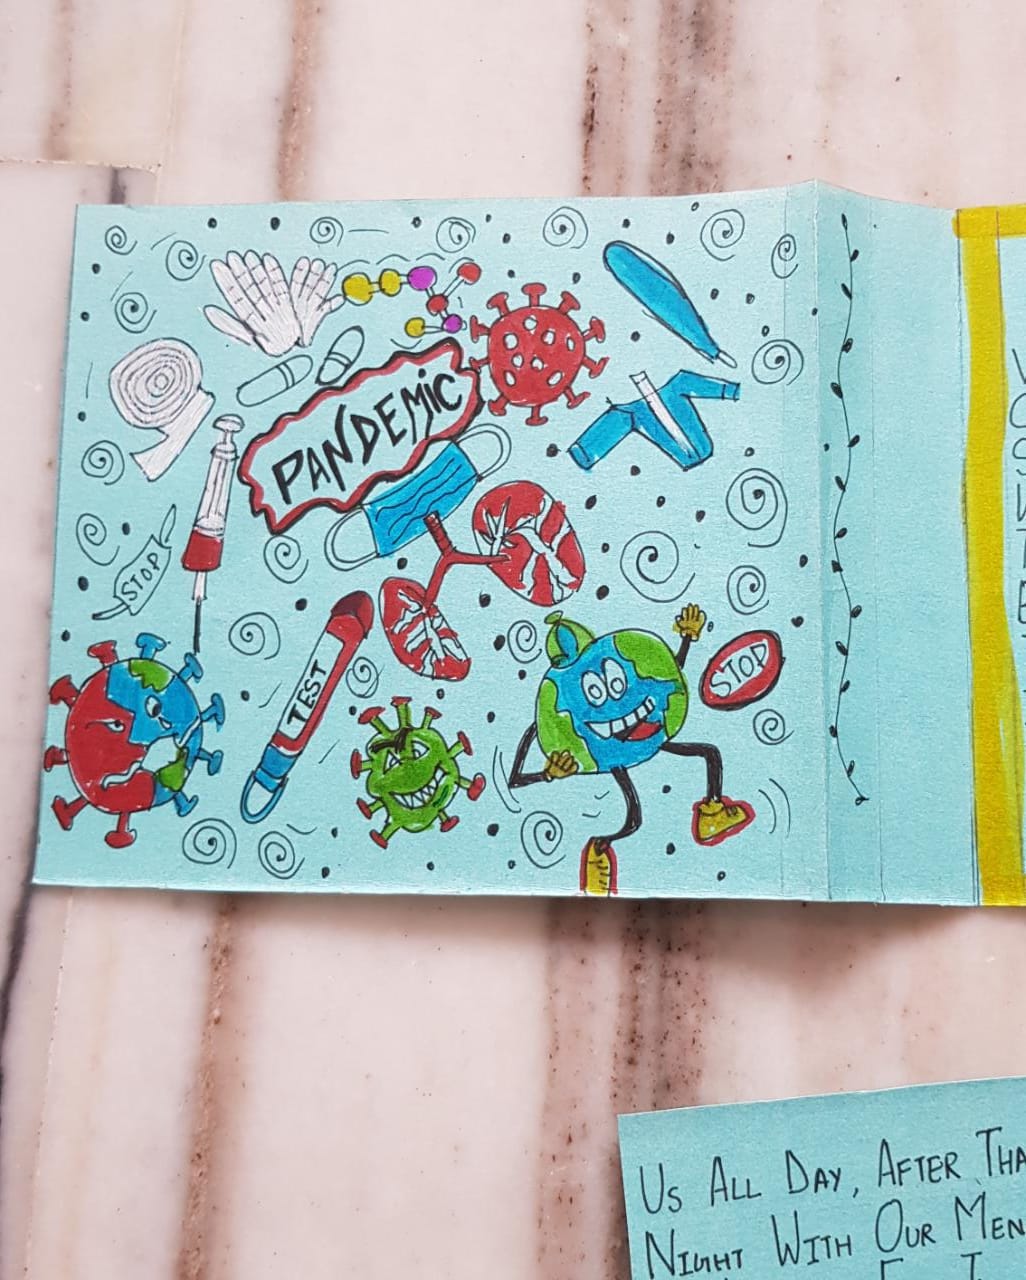 PANDEMIC
STOP
TEST
STOP
US ALL DAY, AFTER THA
NIGHT WITH OUR MEN